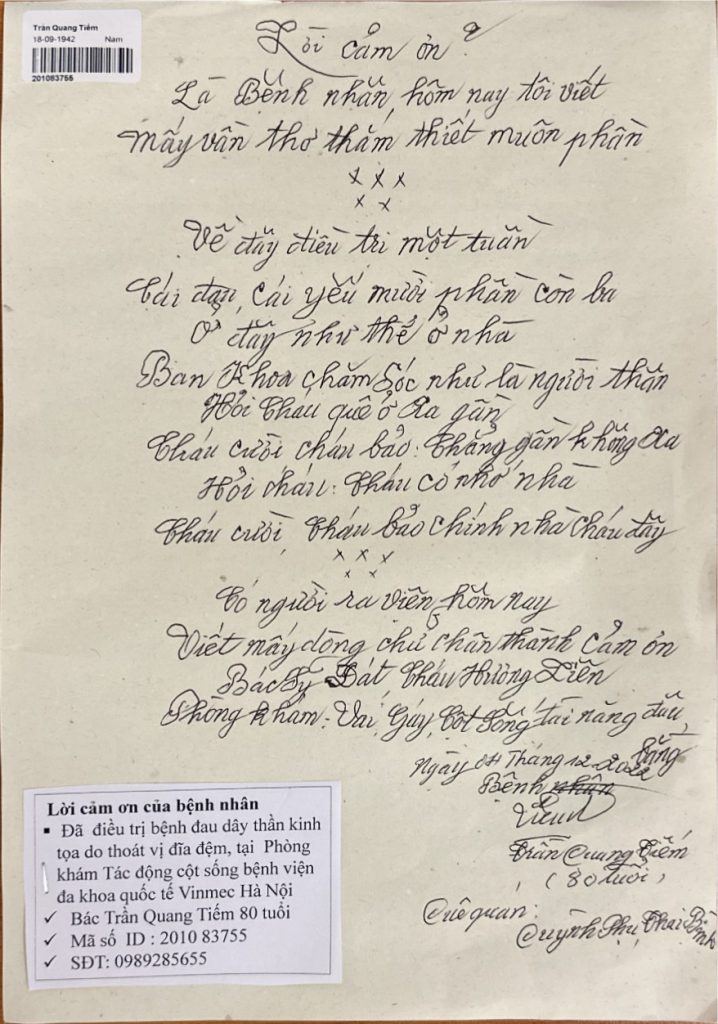 Trần Quang Tiếm
18-09-1942 Nam
201083755
Lời cảm ơn
Là Bệnh nhân hôm nay tôi viết
mấy vần thơ thắm thiết muôn phần
x x x
x x
Về đây điều trị một tuần
Cái đau, cái yếu mười phần còn ba
Ở đây như thể ở nhà
Ban Khoa chăm sóc như là người thân
Hỏi Cháu quê ở xa gần
Cháu cười cháu bảo: Chẳng gần không xa
Hỏi cháu: Cháu có nhớ nhà
Cháu cười Cháu bảo chính nhà cháu đây
x x x
x x
Có người ra viện hôm nay
Viết mấy dòng chữ chân thành cảm ơn
Bác Sỹ Đát Cháu Hương Liên
Phòng khám: Vai, Gáy, Cột Sống tài năng đâu
bằng
Ngày 04 Tháng 12-2022
Bệnh nhân
Trần Quang Tiếm
(80 tuổi)
Quê quan:
Quỳnh Phụ Thái Bình
Lời cảm ơn của bệnh nhân
▪ Đã điều trị bệnh đau dây thần kinh
tọa do thoát vị đĩa đệm, tại Phòng
khám Tác động cột sống bệnh viện
đa khoa quốc tế Vinmec Hà Nội
✓ Bác Trần Quang Tiếm 80 tuổi
✓ Mã số ID : 2010 83755
✓ SĐT: 0989285655